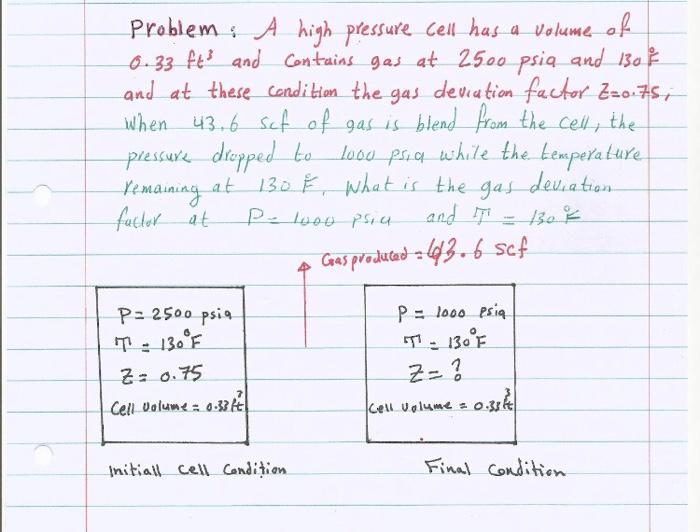 Problem : A high pressure cell has a volume of
0.33 ft³ and contains gas at 2500 psia and 130 °F
and at these condition the gas deviation factor Z=0.75,
when 43.6 scf of gas is blend from the cell, the
pressure dropped to 1000 psia while the temperature
remaining at 130 °F, What is the gas deviation
factor at P= 1000 psia and T = 130 °F
Gas produced = 43.6 scf
P= 2500 psia
T = 130°F
Z= 0.75
Cell volume = 0.33 ft³
Initiall cell condition
P = 1000 psia
T = 130°F
Z= ?
Cell volume = 0.33 ft³
Final condition